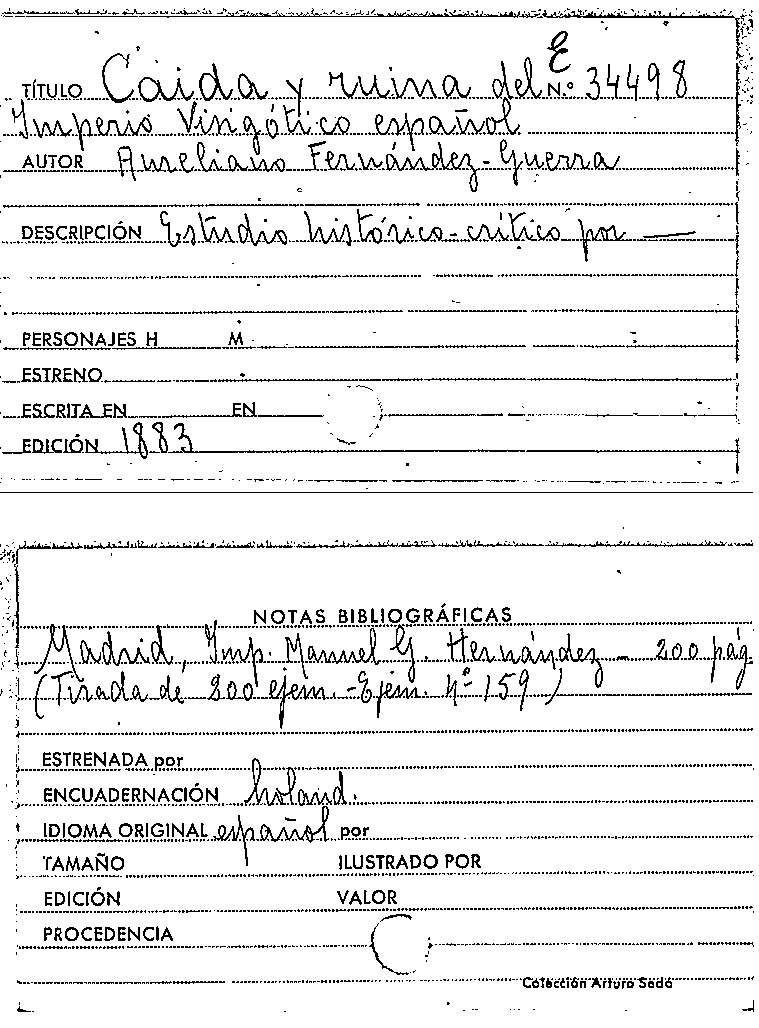 E
TÍTULO Caida y ruina del N.º 34498
Imperio Visigótico español
AUTOR Aureliano Fernández-Guerra
DESCRIPCIÓN Estudio histórico-crítico por —
PERSONAJES H M
ESTRENO
ESCRITA EN EN
EDICIÓN 1883
NOTAS BIBLIOGRÁFICAS
Madrid, Imp. Manuel G. Hernández - 200 pág
(Tirada de 200 ejem. - Ejem. nº 159)
ESTRENADA por
ENCUADERNACIÓN holand.
IDIOMA ORIGINAL español por
TAMAÑO ILUSTRADO POR
EDICIÓN VALOR
PROCEDENCIA
Colección Arturo Sedó